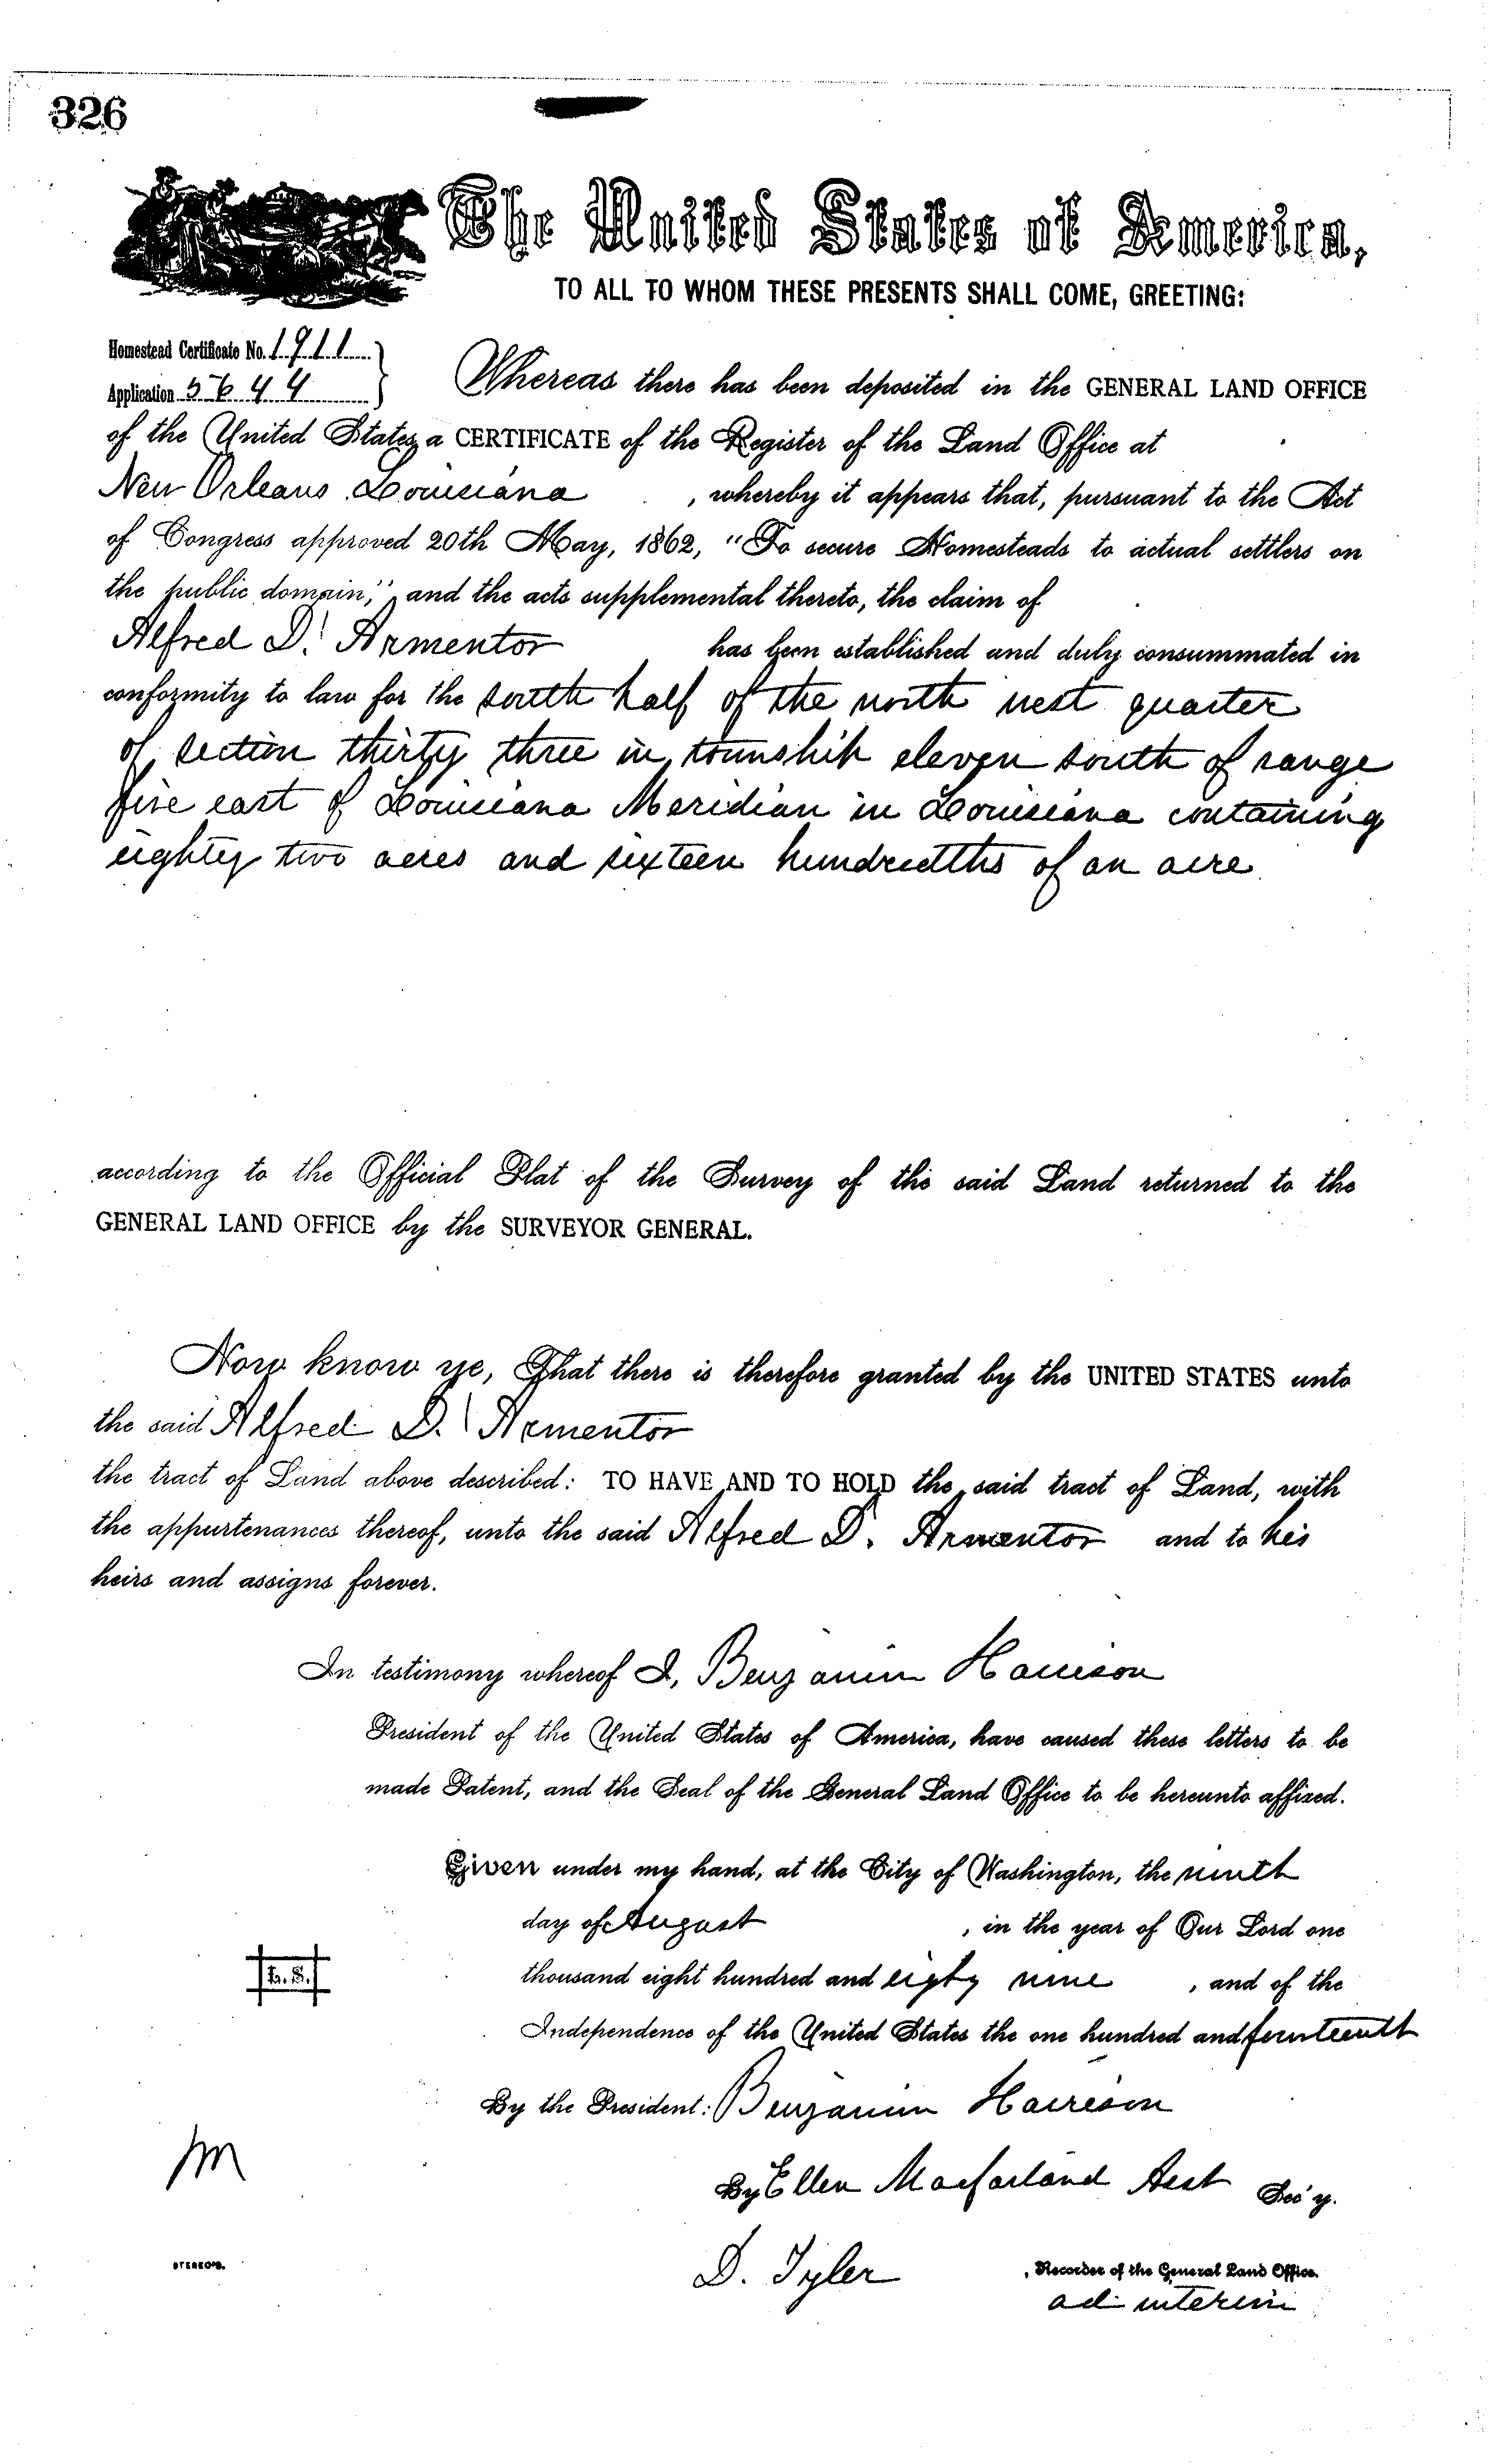 326
The United States of America,
TO ALL TO WHOM THESE PRESENTS SHALL COME, GREETING:
Homestead Certificate No. 1911
Application 5644
Whereas there has been deposited in the GENERAL LAND OFFICE
of the United States a CERTIFICATE of the Register of the Land Office at
New Orleans Louisiana , whereby it appears that, pursuant to the Act
of Congress approved 20th May, 1862, "To secure Homesteads to actual settlers on
the public domain," and the acts supplemental thereto, the claim of
Alfred D. Armentor has been established and duly consummated in
conformity to law for the south half of the north west quarter
of section thirty three in township eleven south of range
five east of Louisiana Meridian in Louisiana containing
eighty two acres and sixteen hundredths of an acre
according to the Official Plat of the Survey of the said Land returned to the
GENERAL LAND OFFICE by the SURVEYOR GENERAL.
Now know ye, That there is therefore granted by the UNITED STATES unto
the said Alfred D. Armentor
the tract of Land above described: TO HAVE AND TO HOLD the said tract of Land, with
the appurtenances thereof, unto the said Alfred D. Armentor and to his
heirs and assigns forever.
In testimony whereof I, Benjamin Harrison
President of the United States of America, have caused these letters to be
made Patent, and the Seal of the General Land Office to be hereunto affixed.
Given under my hand, at the City of Washington, the ninth
day of August , in the year of Our Lord one
thousand eight hundred and eigty nine , and of the
L. S.
Independence of the United States the one hundred and fourteenth
By the President: Benjamin Harrison
M
By Ellen Macfarland Asst Sec'y.
D. Tyler , Recorder of the General Land Office.
ad interim
STEREO'D.